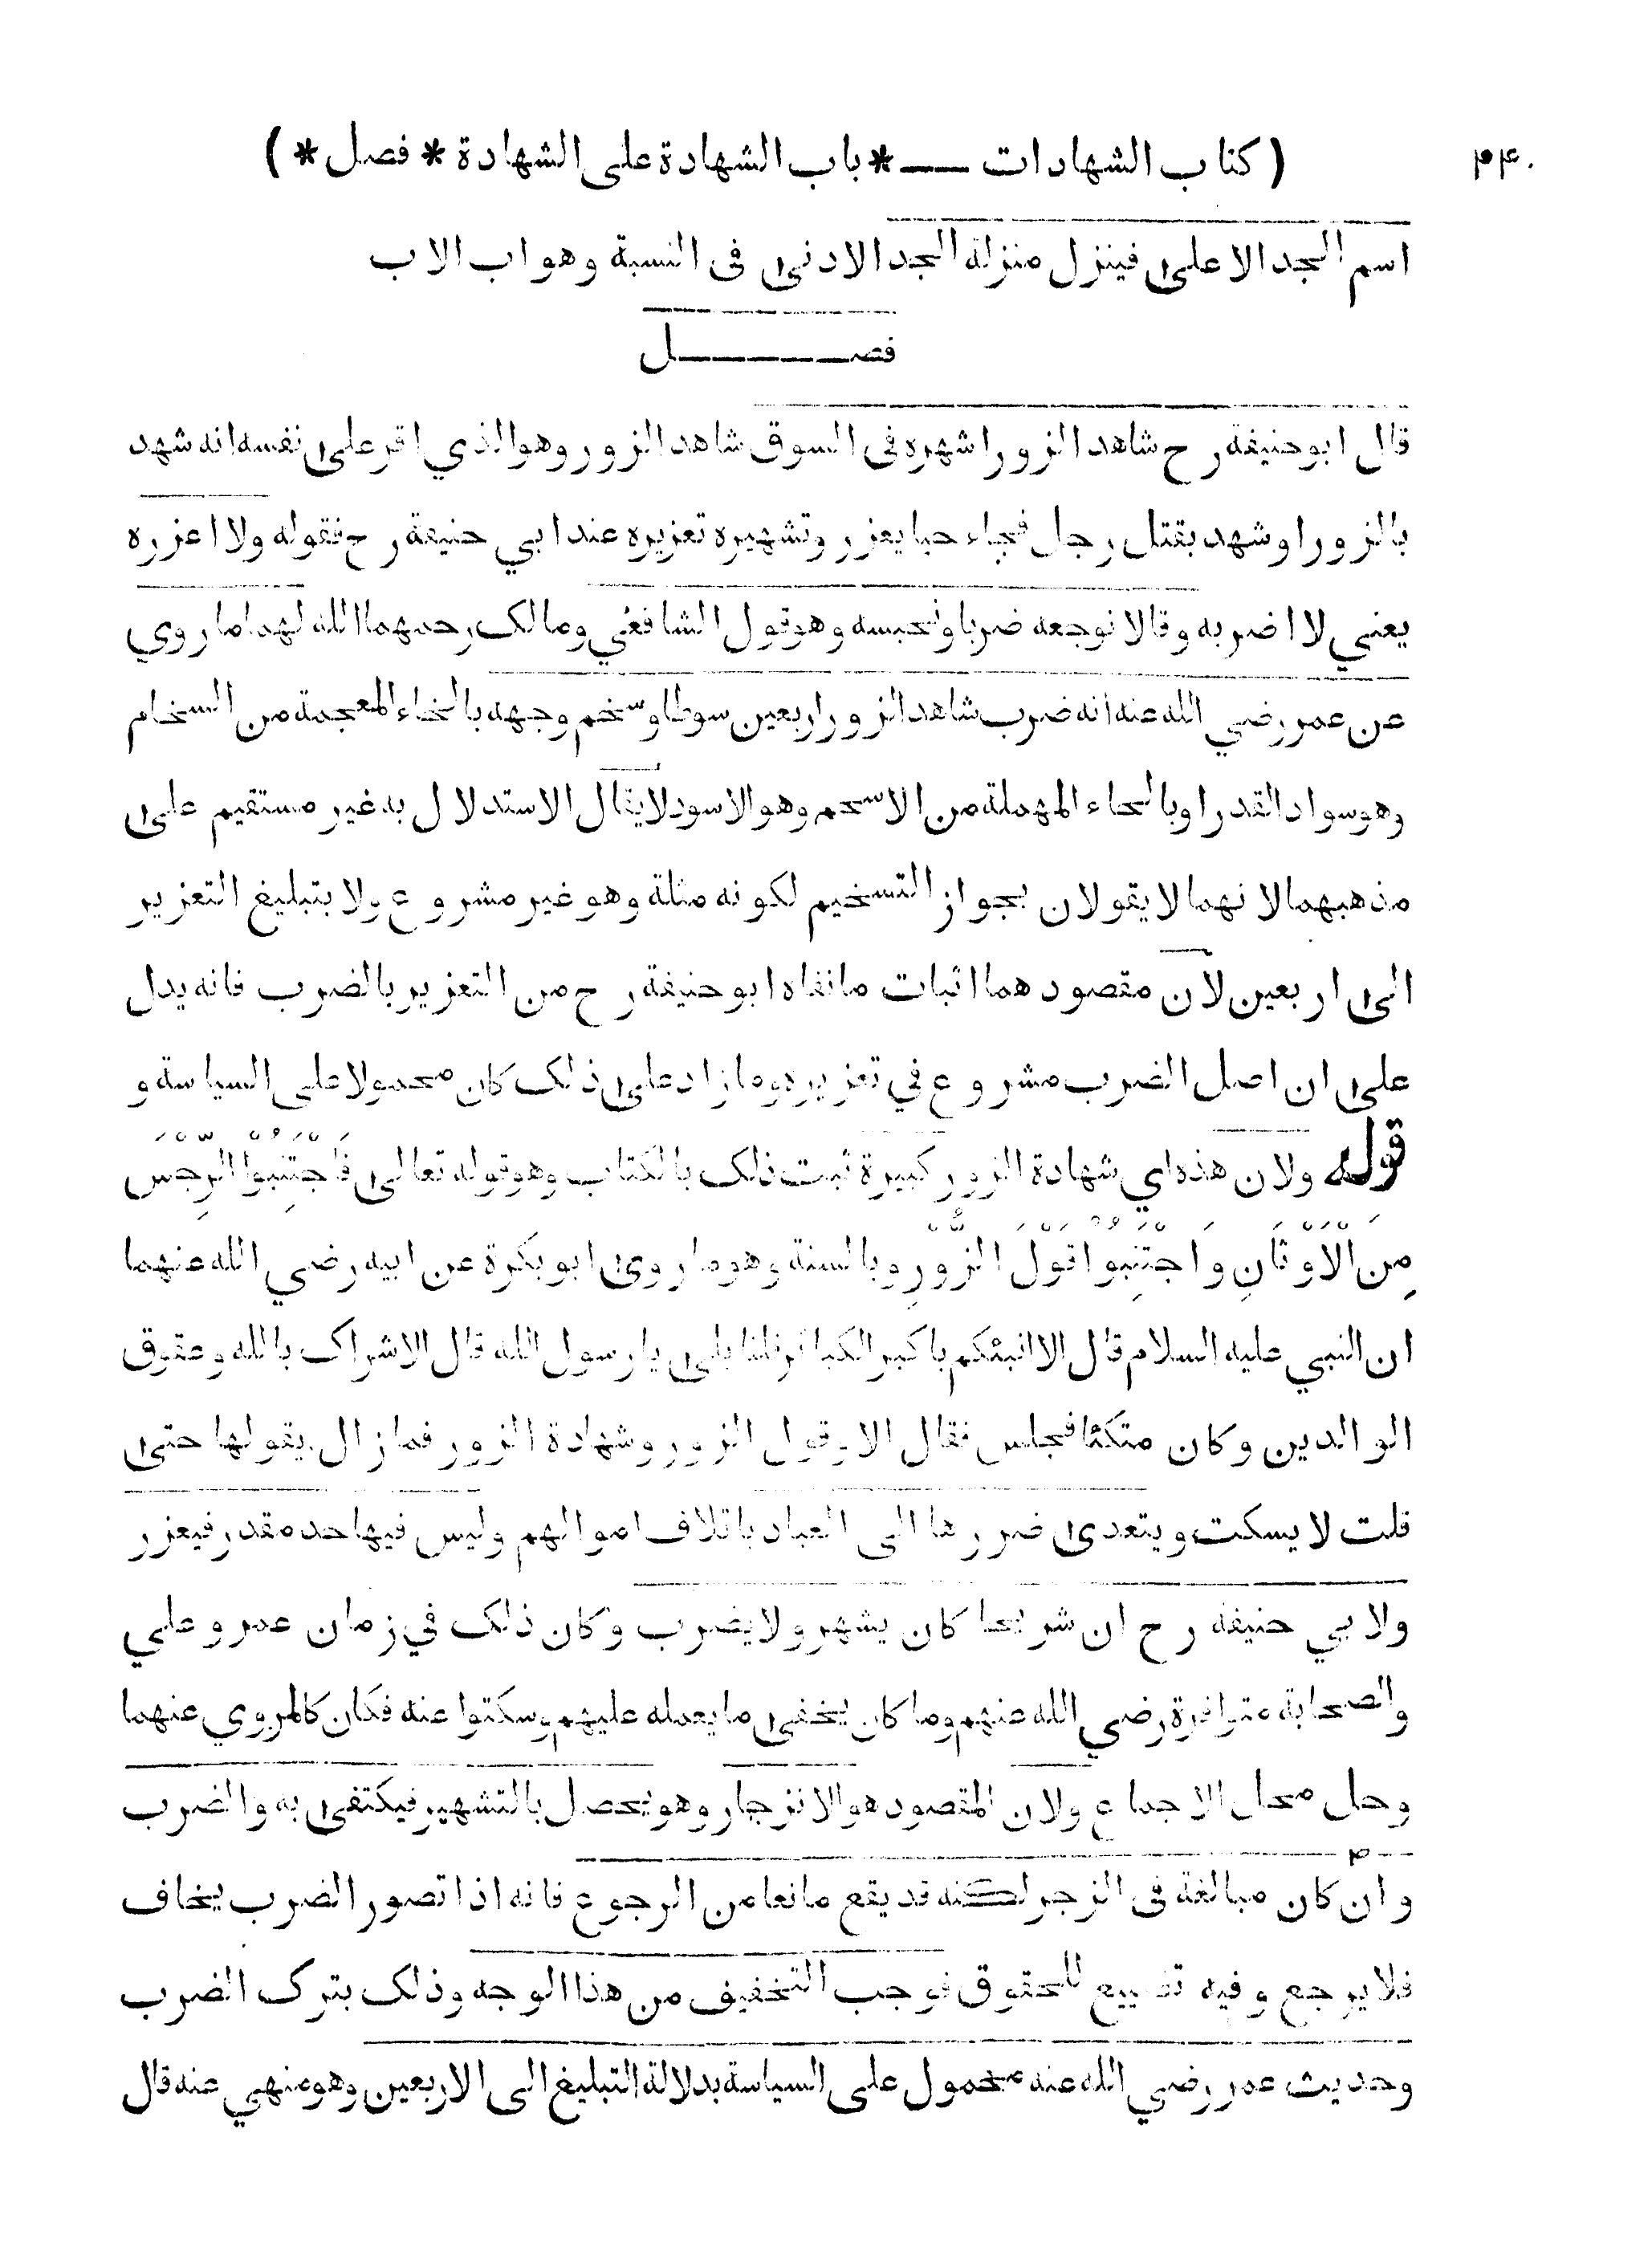 ( كتاب الشهادات — * باب الشهادة على الشهادة * فصل * ) ٣۴٠
اسم الجد الاعلى فينزل منزلة الجد الادنى فى النسبة وهو اب الاب
فصل
قال ابوحنيفة رح شاهد الزور اشهره فى السوق شاهد الزور وهو الذي اقر على نفسه انه شهد
بالزور او شهد بقتل رجل فجاء حيا يعزر وتشهيره تعزيره عند ابي حنيفة رح فقوله ولا اعزره
يعني لا اضربه وقالا نوجعه ضربا ونحبسه وهو قول الشافعي ومالك رحمهما الله لهما ما روي
عن عمر رضي الله عنه انه ضرب شاهد الزور اربعين سوطا وسخم وجهه بالخاء المعجمة من السخام
وهو سواد القدر او بالحاء المهملة من الاسحم وهو الاسود لا يقال الاستدلال به غير مستقيم على
مذهبهما لانهما لا يقولان بجواز التسخيم لكونه مثلة وهو غير مشروع ولا بتبليغ التعزير
الى اربعين لان مقصودهما اثبات ما نفاه ابوحنيفة رح من التعزير بالضرب فانه يدل
على ان اصل الضرب مشروع في تعزيره وما زاد على ذلك كان محمولا على السياسة و
قوله ولان هذه اي شهادة الزور كبيرة ثبت ذلك بالكتاب وهو قوله تعالى فَاجْتَنِبُوا الرِّجْسَ
مِنَ الْاَوْثَانِ وَاجْتَنِبُوا قَوْلَ الزُّوْرِ وبالسنة وهو ما روى ابوبكرة عن ابيه رضي الله عنهما
ان النبي عليه السلام قال الا انبئكم باكبر الكبائر قلنا بلى يا رسول الله قال الاشراك بالله وعقوق
الوالدين وكان متكئا فجلس فقال الا وقول الزور وشهادة الزور فما زال يقولها حتى
قلت لا يسكت ويتعدى ضررها الى العباد باتلاف اموالهم وليس فيها حد مقدر فيعزر
ولابي حنيفة رح ان شريحا كان يشهر ولا يضرب وكان ذلك في زمان عمر وعلي
والصحابة متوافرة رضي الله عنهم وما كان يخفى ما يعمله عليهم وسكتوا عنه فكان كالمروي عنهما
وحل محل الاجماع ولان المقصود هو الانزجار وهو يحصل بالتشهير فيكتفى به والضرب
وان كان مبالغة فى الزجر لكنه قد يقع مانعا من الرجوع فانه اذا تصور الضرب يخاف
فلا يرجع وفيه تضييع للحقوق فوجب التخفيف من هذا الوجه وذلك بترك الضرب
وحديث عمر رضي الله عنه محمول على السياسة بدلالة التبليغ الى الاربعين وهو منهي عنه قال